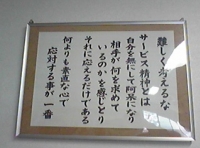 難しく考えるな
サービス精神とは
自分を無にして阿呆になり
相手が何を求めて
いるのかを感じとり
それに応えるだけである
何よりも素直な心で
応対する事が一番